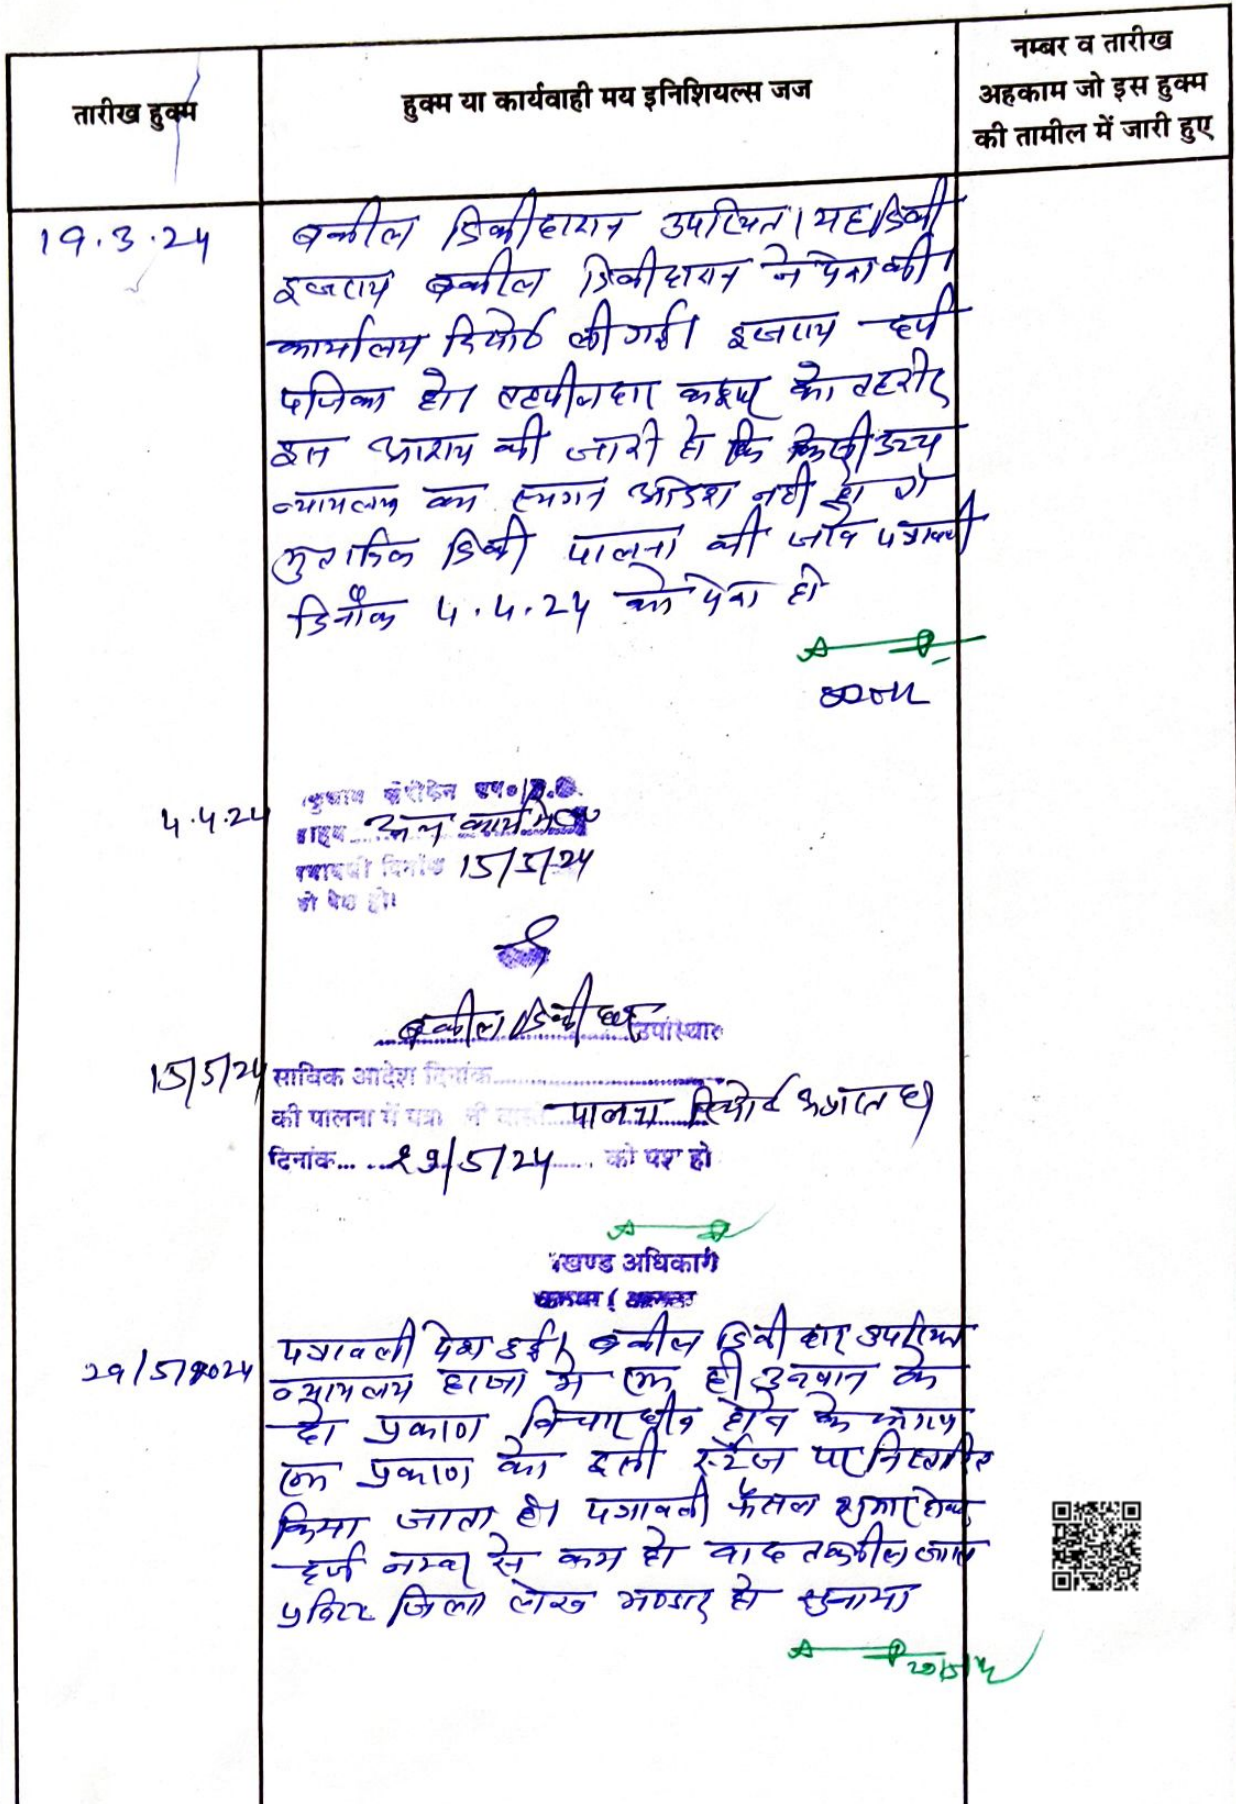 तारीख हुक्म
हुक्म या कार्यवाही मय इनिशियल्स जज
नम्बर व तारीख
अहकाम जो इस हुक्म
की तामील में जारी हुए
19.3.24
वकील डिक्रीदारान उपस्थित। यह डिक्री
इजराय वकील डिक्रीदारान ने पेश की।
कार्यालय रिपोर्ट ली गई। इजराय दर्ज
पंजिका हो। तहसीलदार को तहरीर
इस आशय की जारी हो कि किसी उच्च
न्यायालय का स्थगन आदेश नहीं हो तो
मुताबिक डिक्री पालना की जावे पत्रावली
दिनांक 4.4.24 को पेश हो
4.4.24
अन्य कार्य में
पत्रावली दिनांक 15/5/24
को पेश हो।
वकील डिक्रीदार उपस्थित
15/5/24
साबिक आदेश दिनांक
की पालना में पत्रा वास्ते पालना रिपोर्ट
दिनांक 29/5/24 को पेश हो
खण्ड अधिकारी
29/5/2024
पत्रावली पेश हुई। वकील डिक्रीदार उपस्थित
न्यायालय हाजा में एक ही उनवान के
दो प्रकरण विचाराधीन होने के कारण
एक प्रकरण को इसी स्टेज पर निस्तारित
किया जाता है। पत्रावली फैसल शुमार होकर
दर्ज नम्बर से कम हो बाद तकमील जाप्ता
प्रविष्ट जिला लेख भण्डार हो सुनाया
29/5/24